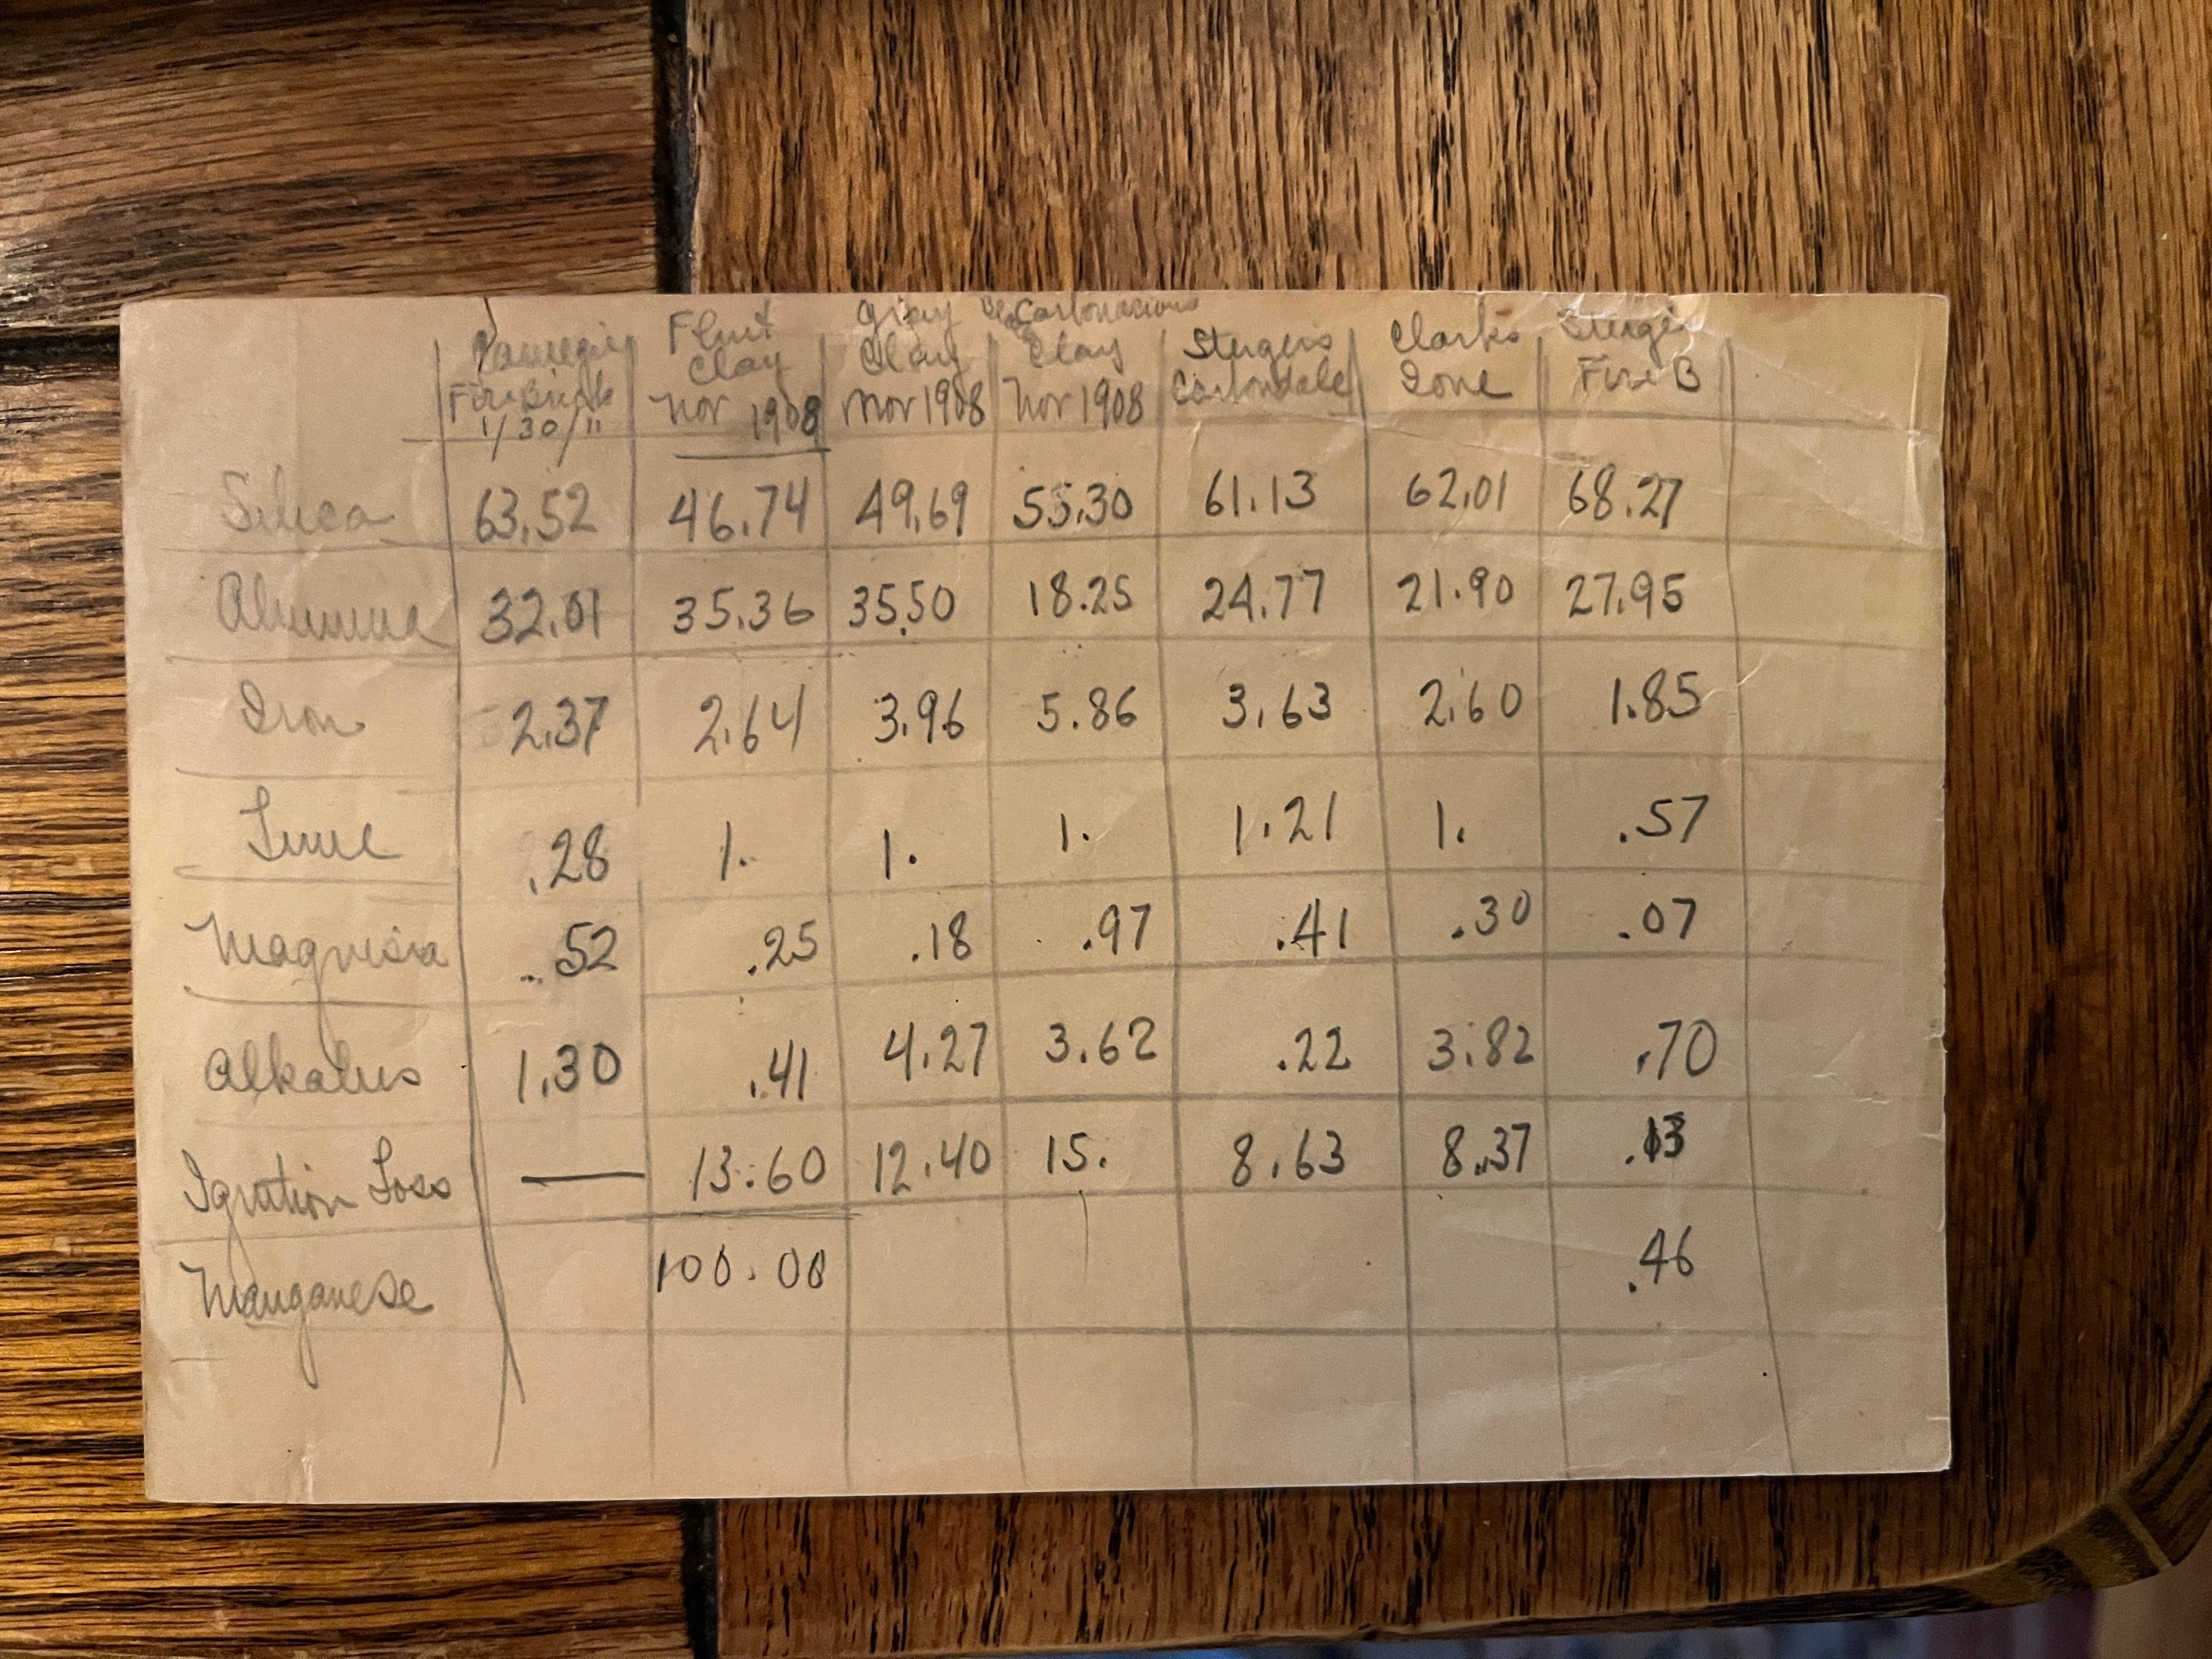 Fire Brick 1/30/11
Flint Clay Nov 1908
Gray Clay Nov 1908
Carbonacious Clay Nov 1908
Sturgers Carbondale
Clarks Ione
Fire B
Silica 63.52 46.74 49.69 55.30 61.13 62.01 68.27
Alumina 32.01 35.36 35.50 18.25 24.77 21.90 27.95
Iron 2.37 2.64 3.96 5.86 3.63 2.60 1.85
Lime .28 1. 1. 1. 1.21 1. .57
Magnesia .52 .25 .18 .97 .41 .30 .07
Alkalies 1.30 .41 4.27 3.62 .22 3.82 .70
Ignition Loss — 13.60 12.40 15. 8.63 8.37 .13
Manganese 100.00 .46